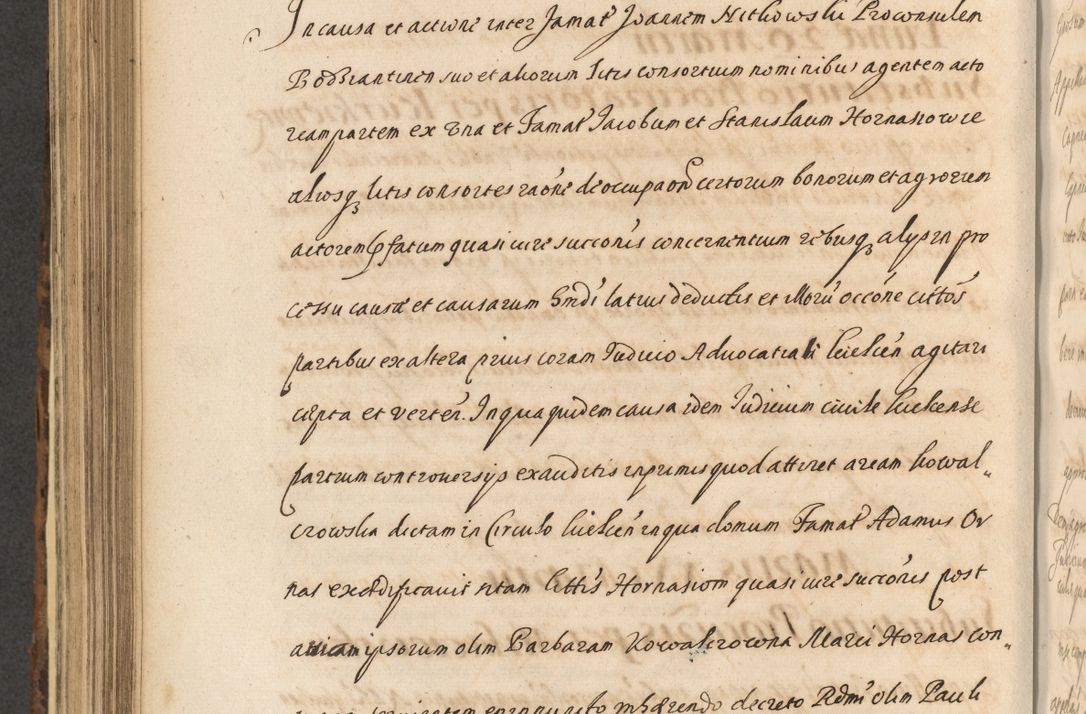 In causa et actione inter famat Joannem Nitkowski Proconsulem
Bodzantinen suo et aliorum litis consortium nominibus agentem acto
ream partem ex una et Famat Jacobum et Stanislaum Hornasiowie
aliosq litis consortes raône de occupaoñ certorum bonorum et agrorum
actorem pfatum quasi iure succonis concernentium rebusq alysin pro
cessu causæ et causarum Emdi latius deductis et Morũ occône cittos
partibus ex altera prius coram Judicio Advocatiali kielcen agitari
cæpta et verteñ. In qua quidem causa idem Judicium civile kielcense
partium controversijs exauditis inprimis quod attinet aream kowal„
czowska dictam in Circulo kielceñ in qua domum Famat Adamus Or
nas exædificavit ritam littis Hornasiom quasi iure succonis post
amicam ipsorum olim Barbaram Kowalczowona Marci Hornas con„
decreto Rdmi olim Pauli